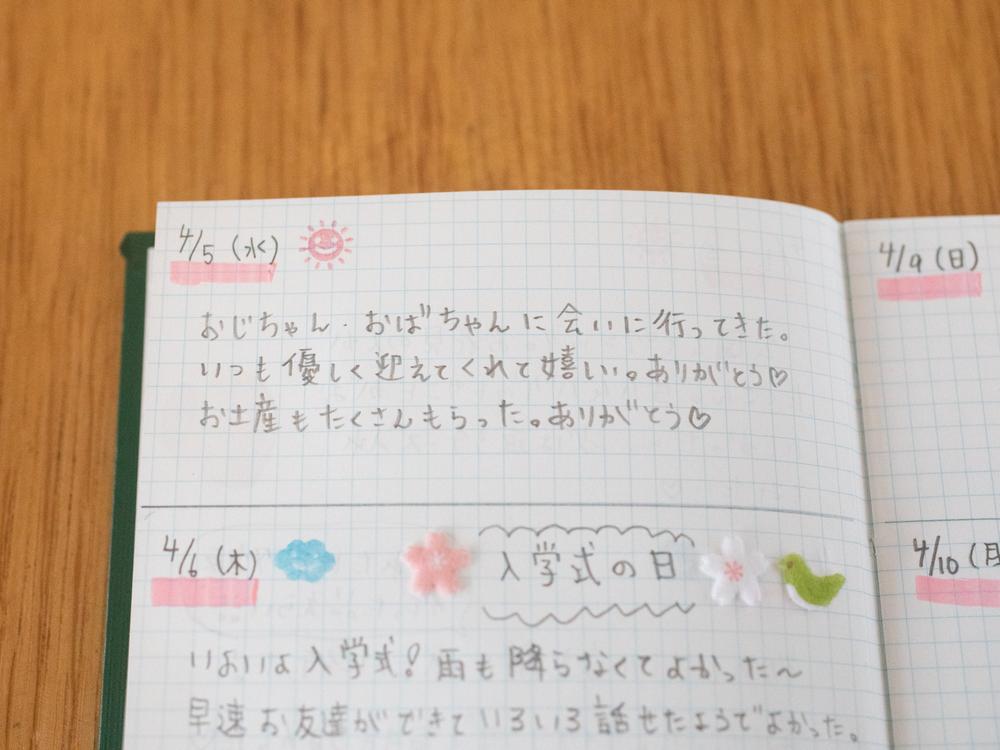 4/5 (水)
おじちゃん・おばちゃんに会いに行ってきた。
いつも優しく迎えてくれて嬉しい。ありがとう♡
お土産もたくさんもらった。ありがとう♡
4/6 (木)
入学式の日
いよいよ入学式！雨も降らなくてよかった〜
早速お友達ができていろいろ話せたようでよかった。
4/9 (日)
4/10 (月